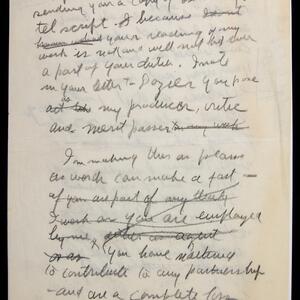 sending you a copy of
tel script. It because
your reading of my
work is not and will not ever
a part of your duties. I note
in your letter - Dozier you pose
as my producer, critic
and merit passer on my work
I'm making this as plain
as words can make a fact -
if you are part of my
work as you are employed
by me, other as agent
or as You have nothing
to contribute to any partnership
- and are a complete